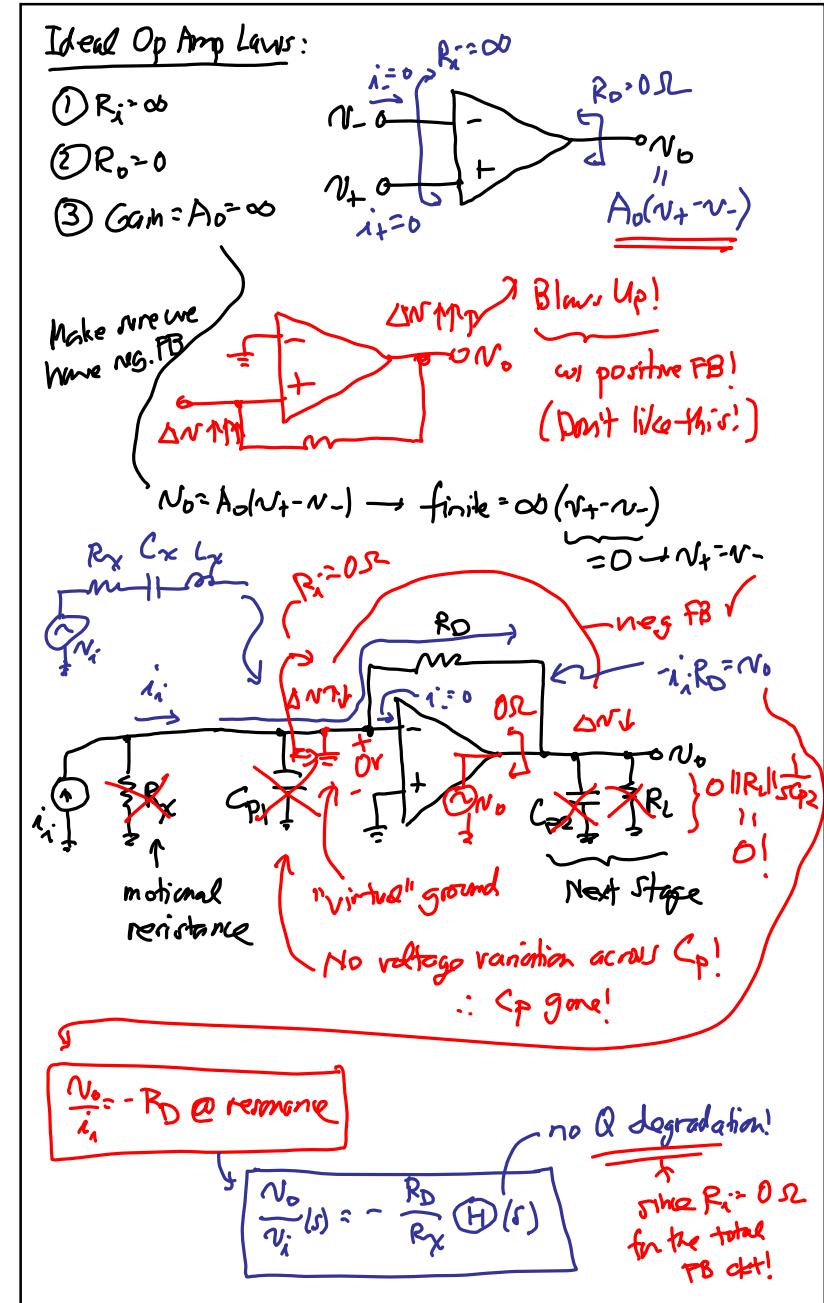 Ideal Op Amp Laws:
① Ri=∞
② Ro=0
③ Gain=A0=∞
i-=0
Ri=∞
v-
-
v+
+
i+=0
R0=0Ω
v0
=
A0(v+-v-)
Make sure we
have neg. FB
-
+
Δv↑↑↑
Δv↑↑↑
v0
Blows Up!
w/ positive FB!
(Don't like this!)
v0=A0(v+-v-) → finite=∞(v+-v-)
=0→v+=v-
Rx Cx Lx
vi
Ri=0Ω
RD
neg FB ✓
-iiRD=v0
ii
Δv↑↓
i-=0
0Ω
Δv↓
+
0v
-
-
+
v0
v0
ii
Rx
Cp1
Cp2
RL
0||RL||1/sCp2
=
0!
motional
resistance
"virtual" ground
Next Stage
No voltage variation across Cp!
∴ Cp gone!
v0/ii=-RD @ resonance
no Q degradation!
v0/vi(s)=-RD/Rx Ⓗ(s)
since Ri=0Ω
for the total
FB ckt!